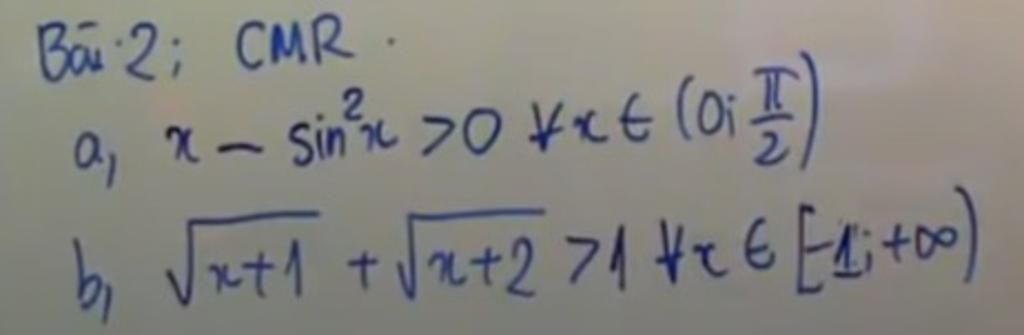 Bài 2; CMR.
a, x - sin²x > 0 ∀x ∈ (0; π/2)
b, √(x+1) + √(x+2) > 1 ∀x ∈ [-1; +∞)